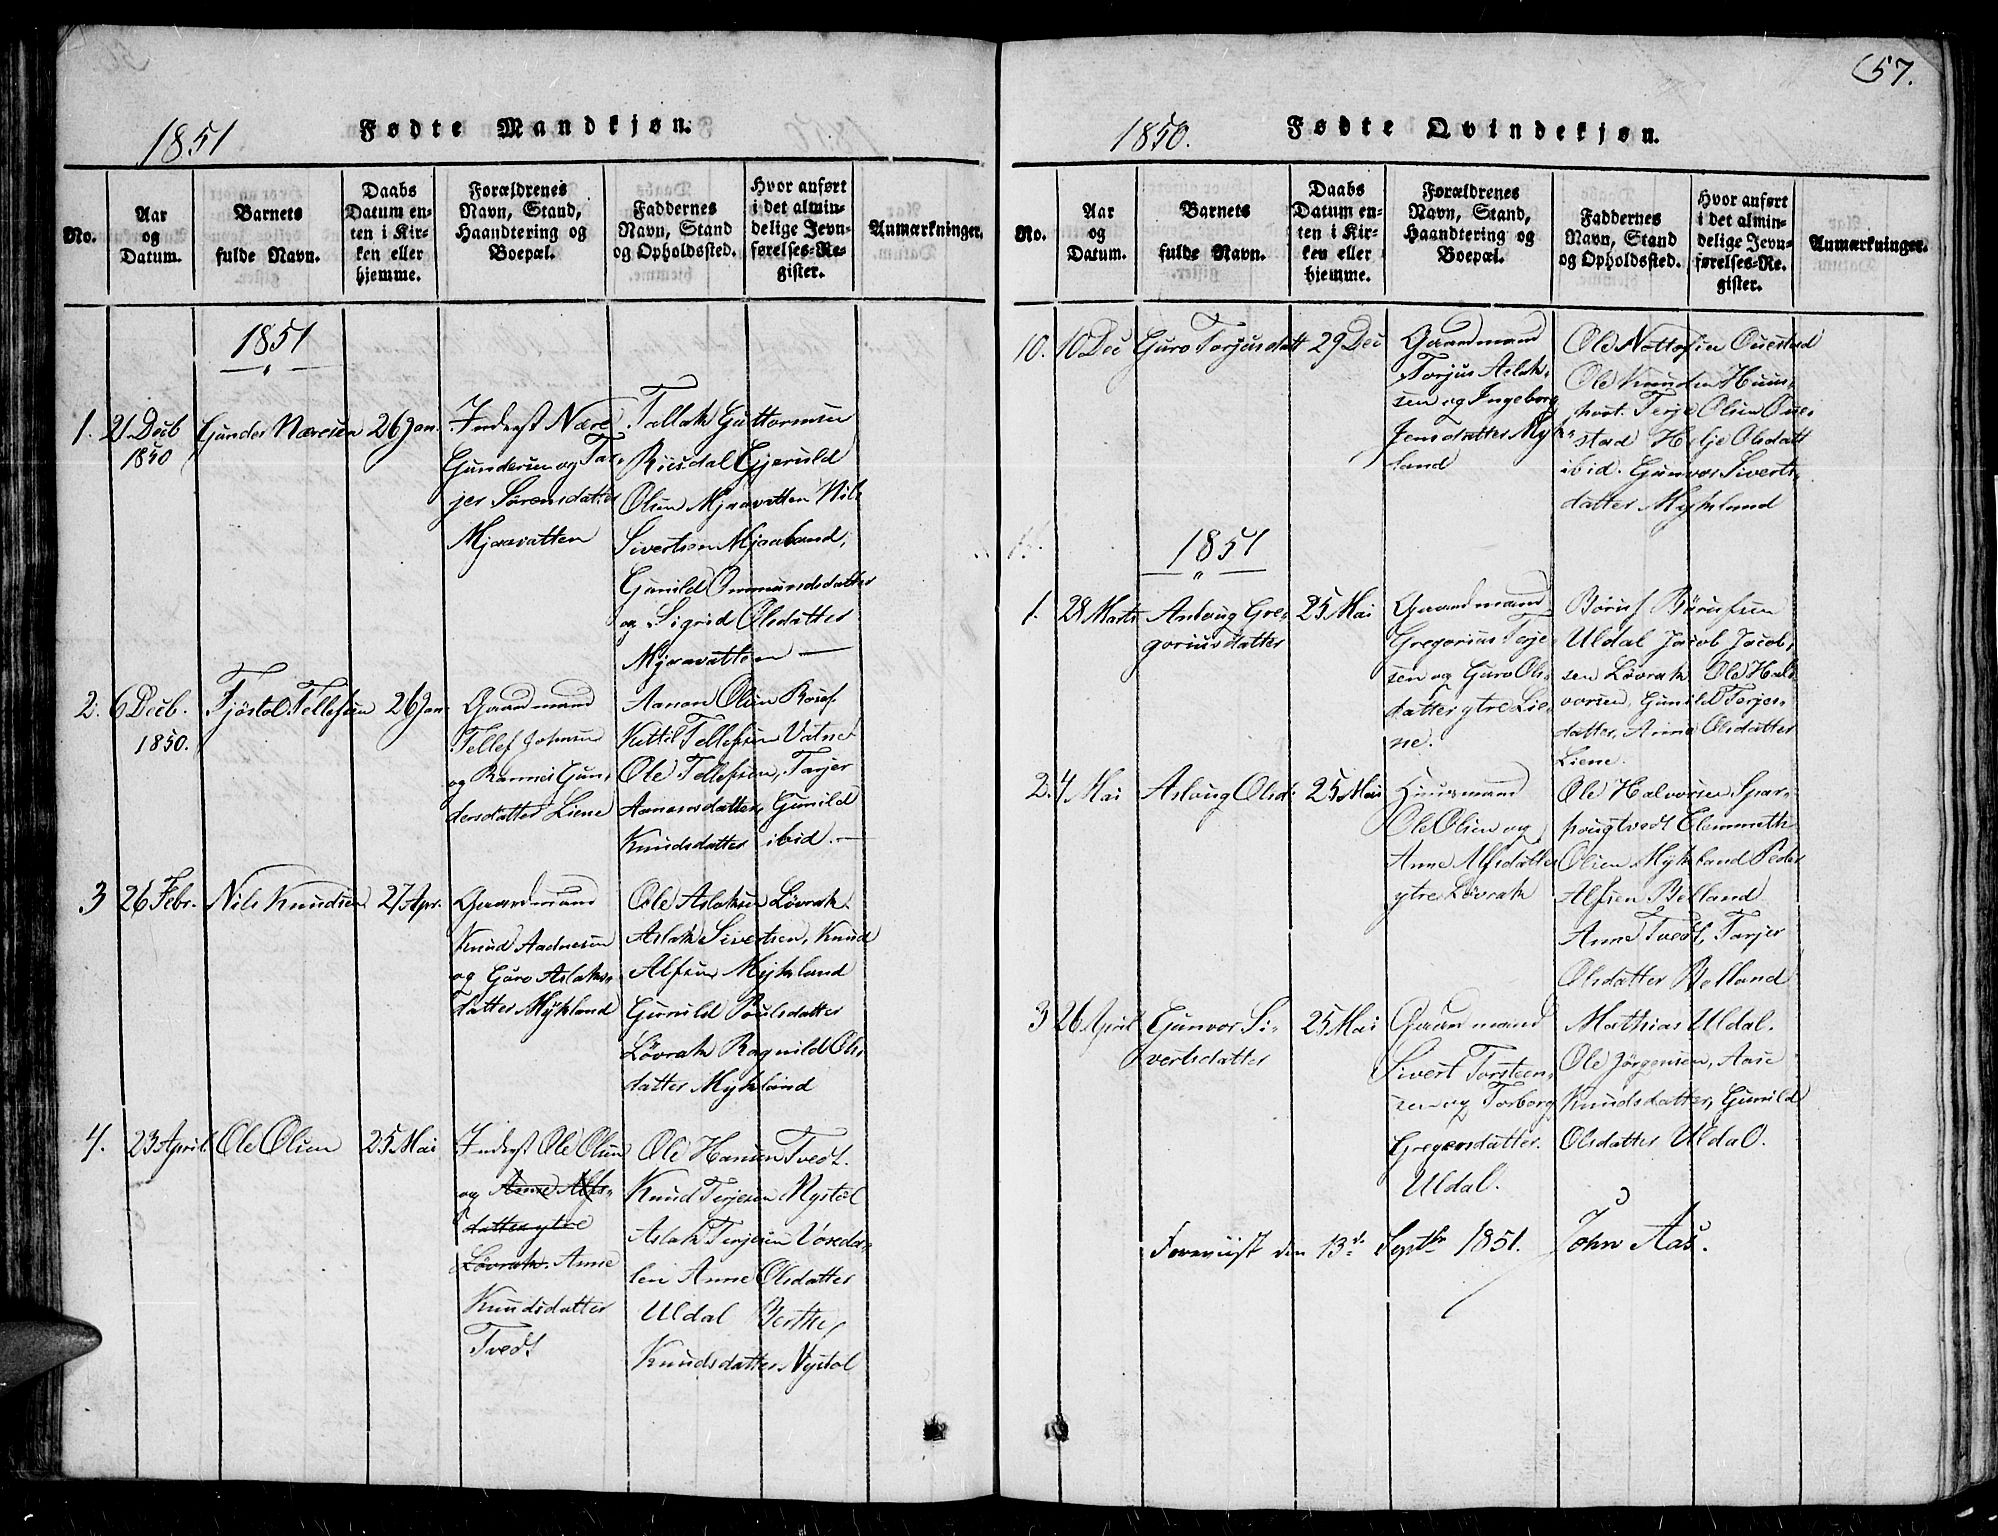 57.
1851 Fødte Mandkjøn.
No.
Aar
og
Datum.
Barnets
fulde Navn.
Daabs
Datum en-
ten i Kir-
ken eller
hjemme.
Forældrenes
Navn, Stand,
Haandtering og
Boepæl.
Faddernes
Navn, Stand
og Opholdssted.
Hvor anført
i det almin-
delige Jevn-
førelses-Re-
gister.
Anmærkninger.
1851
1. 21 Decb
1850
Gunder Næresen
26 Jan.
Inderst Nære
Gundersen og Tar-
jer Sørensdatter
Mjaavatten
Tallak Guttormsen
Riisdal Gjeruld
Olsen Mjaavatten Nils
Sivertsen Mjaaland,
Gunild Ommundsdatter
og Sigrid Olsdatter
Mjaavatten —
2. 6 Decb.
1850.
Fjøstol Tellefsen
26 Jan
Gaardmand
Tellef Johnsen
og Rannei Gun-
dersdatter Liene
Aanon Olsen
Kittil Tellefsen Vatne
Ole Tellefsen, Tarjer
Aanonsdatter, Gunild
Knudsdatter ibid. —
3 26 Febr.
Nils Knudsen
27 Apr.
Gaardmand
Knud Aadnesen
og Guro Aslaks-
datter Mykland
Ole Aslaksen Løvrak.
Aslak Sivertsen, Knud
Alfsen Mykland
Gunild Poulsdatter
Løvrak Ragnild Ols-
datter Mykland
4. 23 April.
Ole Olsen
25 Mai
Inderst Ole Olsen
og Anne Alfs-
datter ytre
Løvrak. Anne
Knudsdatter
Tvedt
Ole Hansen Tvedt.
Knud Terjesen Nystøl
Aslak Terjesen Voseda-
len Anne Olsdatter
Uldal Berthe
Knudsdatter Nystøl
1850. Fødte Qvindekjøn.
No.
Aar
og
Datum.
Barnets
fulde Navn.
Daabs
Datum en-
ten i Kir-
ken eller
hjemme.
Forældrenes
Navn, Stand,
Haandtering og
Boepæl.
Faddernes
Navn, Stand
og Opholdssted.
Hvor anført
i det almin-
delige Jevn-
førelses-Re-
gister.
Anmærkninger.
10. 10 Dec
Guro Torjusdatt
29 Dec
Gaardmand
Torjus Aslak-
sen og Ingeborg
Jensdatter Myk-
land
Ole Nottosen Ouestad
Ole Knudsen Huus-
hvot. Terje Olsen Oue-
stad Helje Olsdatt
ibid. Gunvor Siverts-
datter Mykland
1851
1. 28 Marts
Aslaug Gre-
goriusdatter
25 Mai
Gaardmand
Gregorius Terje-
sen og Guro Ols-
datter ytre Lie-
ne.
Børuf Børufsen
Uldal Jacob Jacob-
sen Løvrak Ole Hal-
vorsen, Gunild Terjes-
datter, Anne Olsdatter
Liene.
2. 4 Mai
Aslaug Olsd:
25 Mai
Huusmand
Ole Olsen og
Anne Alfsdatter
ytre Løvrak
Ole Halvorsen Spar-
hougtvedt Clemmeth
Olsen Mykland Peder
Alfsen Belland
Anne Tvedt, Tarjer
Olsdatter Belland
3 26 April
Gunvor Si-
vertsdatter
25 Mai
Gaardmand
Sivert Torsteen-
sen og Torborg
Gregersdatter.
Uldal.
Mathias Uldal.
Ole Jørgensen, Aase
Knudsdatter, Gunild
Olsdatter Uldal.
Foreviist den 13de Septbr 1851. John Aas.